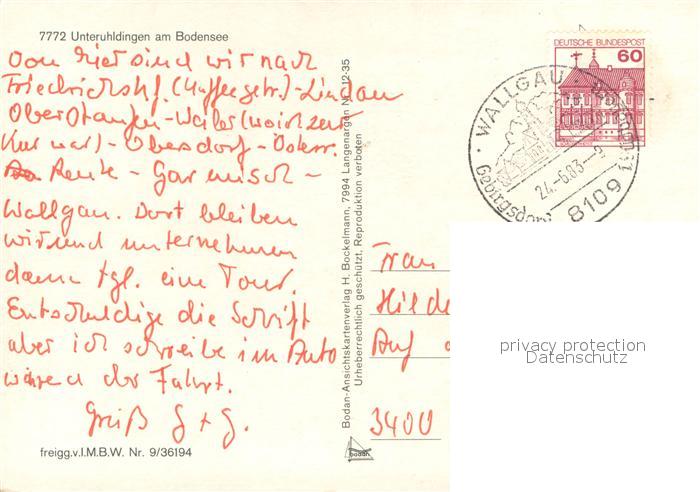 7772 Unteruhldingen am Bodensee
Von hier sind wir nach
Friedrichsh. (Kaffeegetr.)-Lindau
Oberstaufen-Weiler (wo ich zur
Kur war) - Obersdorf - Österr.
Reute - Garmisch -
Wallgau. Dort bleiben
wir und unternehmen
dann tgl. eine Tour.
Entschuldige die Schrift
aber ich schreibe im Auto
wärend der Fahrt.
Gruß G + G.
freigg.v.I.M.B.W. Nr. 9/36194
Bodan-Ansichtskartenverlag H. Bockelmann, 7994 Langenargen Nr. 12-35
Urheberrechtlich geschützt, Reproduktion verboten
bodan
DEUTSCHE BUNDESPOST
60
WALLGAU
Gebirgsdorf
24.-6.83--9
8109 1
Frau
Hilde
Auf
3400
privacy protection
Datenschutz